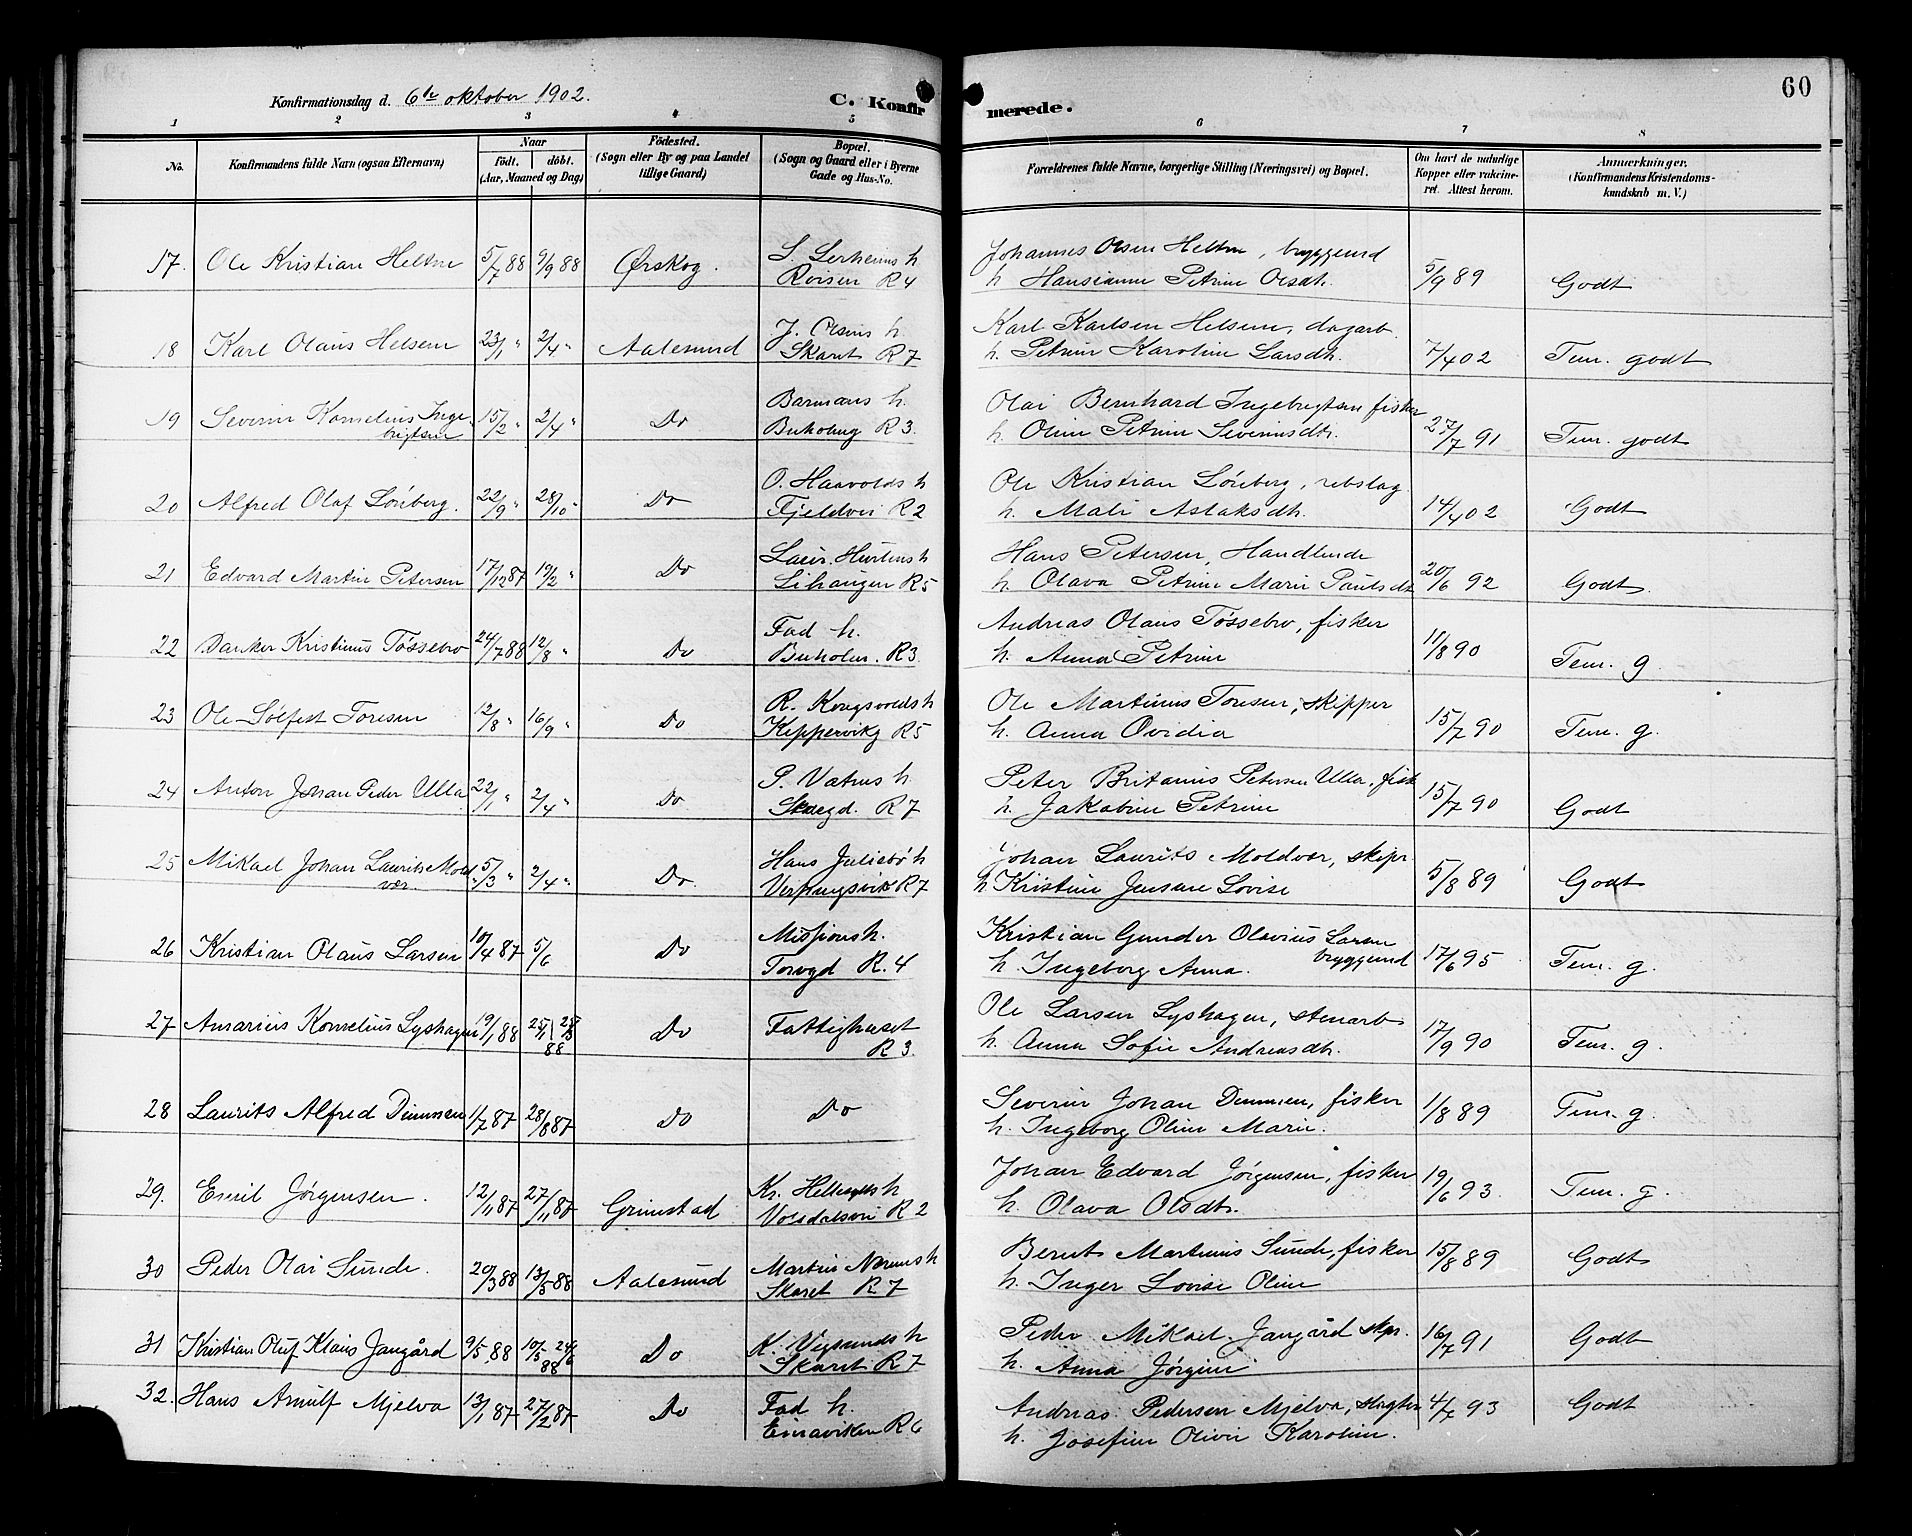 60
Konfirmationsdag d. 6te oktober 1902.
C. Konfirmerede.
1 2 3 4 5 6 7 8
No.
Konfirmandens fulde Navn (ogsaa Efternavn)
Naar
födt. döbt.
(Aar, Maaned og Dag)
Födested.
(Sogn eller By og paa Landet
tillige Gaard)
Bopæl.
(Sogn og Gaard eller i Byerne
Gade og Hus-No.
Forældrenes fulde Navne, borgerlige Stilling (Næringsvei) og Bopæl.
Om havt de naturlige
Kopper eller vakcine-
ret. Attest herom.
Anmærkninger.
(Konfirmandens Kristendoms-
kundskab m. V.)
17. Ole Kristian Heltne 5/7 88 9/9 88 Ørskog. S. Lerheims h. Johannes Olsen Heltne, bryggemd
Røisen R 4 h. Hansianne Petrine Olsdt. 5/9 89 Godt
18 Karl Olaus Helsem 23/1 " 2/4 " Aalesund J. Olsens h. Karl Karlsen Helsem, dagarb.
Skaret R 7 h. Petrine Karoline Larsdt. 7/4 02 Tem. godt
19 Severin Kornelius Inge- 15/2 " 2/4 " Do Barmans h. Olai Bernhard Ingebrigtsen fisker
brigtsen Buholmg R 3. h. Oline Petrine Severinsdt. 27/7 91 Tem. godt
20 Alfred Olaf Löneberg. 22/9 " 28/10 " Do O. Haavolds h. Ole Kristian Löneberg, rebslag.
Fjeldvei R 2 h. Mali Aslaksdt. 14/4 02 Godt
21 Edvard Martin Petersen 17/12 87 19/2 " Do Laur. Hurlens h. Hans Petersen, Handlende
Lihaugen R 5 h. Olava Petrine Marie Paulsdt 20/6 92 Godt.
22 Danker Kristinus Tøssebro 24/7 88 12/8 " Do Fad h. Andreas Olaus Tøssebro, fisker
Buholm. R 3. h. Anna Petrine 11/8 90 Tem. g.
23 Ole Sølfest Toresen 12/8 " 16/9 " Do R. Kongsvolds h. Ole Martinus Toresen, skipper
Kippervikg R5 h. Anna Ovidia 15/7 90 Tem. g.
24 Anton Johan Peder Ulla 22/1 " 2/4 " Do P. Vatnes h. Peter Britanius Petersen Ulla, fisk
Skaregd. R 7 h. Jakobine Petrine 15/7 90 Godt
25 Mikael Johan Laurits Mold- 5/3 " 2/4 " Do. Hans Juliebø h. Johan Laurits Moldvær, skipr.
vær. R 7 h Kristine Jensine Lovise 5/8 89 Godt
26 Kristian Olaus Larsen 10/4 87 5/6 Do Missions h. Kristian Gunder Olavius Larsen
Torvgd R. 4 h. Ingeborg Anna. bryggemd 17/6 95 Tem. g.
27 Amarius Kornelius Lyshagen 19/1 88 88 Do Fattighuset Ole Larsen Lyshagen, stenarb
R 3. h. Anna Sofie Andreasdt. 17/9 90 Tem. g.
28 Laurits Alfred Dimmen 1/7 87 28/8 87 Do Do Severin Johan Dimmen, fisker 1/8 89 Tem. g.
h. Ingeborg Oline Marie.
29. Emil Jørgensen. 12/11 87 27/11 87 Grimstad Kr. h Johan Edvard Jørgensen, fisker 19/6 93. Tem. g.
Volsdalsvei R 2 h. Olava Olsdt.
30 Peder Olai Sunde. 20/3 88 13/5 88 Aalesund Martin h Bernt Martinus Sunde, fisker 15/8 89 Godt
Skaret R 7 h. Inger Lovise Oline
31 Kristian Oluf Klaus Jangård 9/5 88 10/5 24/6 88 Do K. Vigsunds h Peder Mikael Jangård skpr. 16/7 91 Godt
Skaret R 7 h. Anna Jørgine
32. Hans Arnulf Mjelva 13/1 87 27/2 87 Do Fad h. Andreas Pedersen Mjelva, slagter 4/7 93 Godt
Einaviken R. 6 h. Josefine Olivie Karoline.